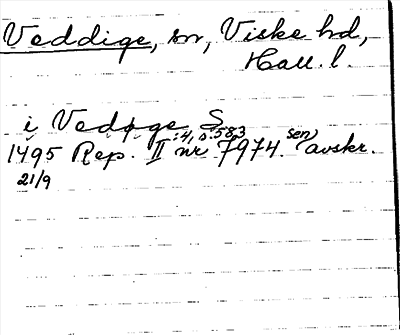 Veddige, sn, Viske hd,
Hall. l.
i Vedøge S
1495 Rep. II :4, s. 583 nr 7974. sen avskr.
21/9